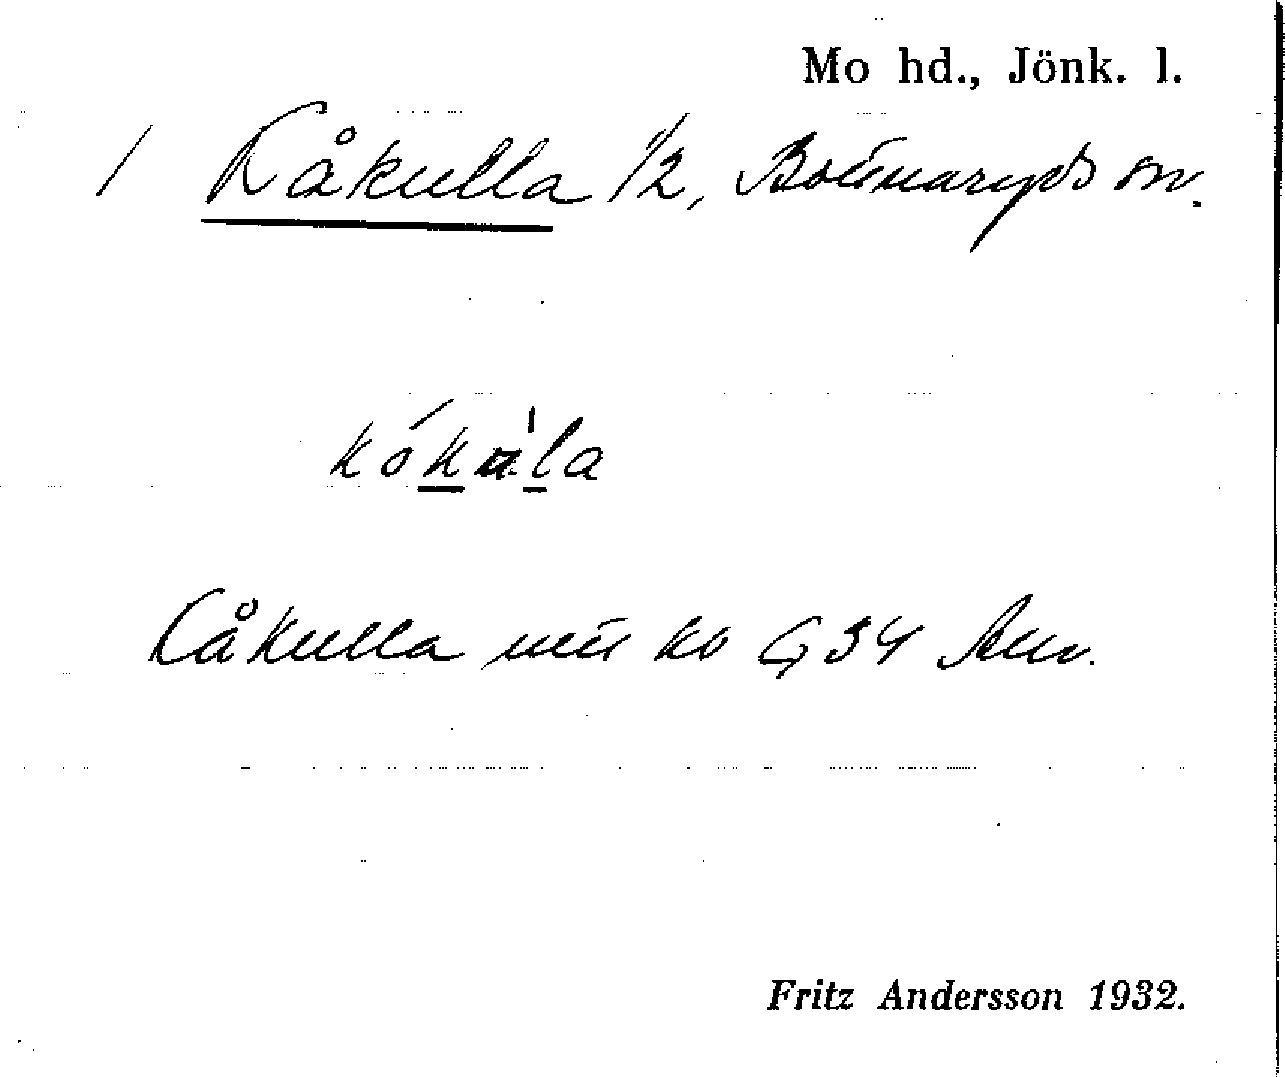 Mo hd., Jönk. l.
/ Kåkulla 1/2, Bottnaryds sn.
kókùla
Kåkulla ko G34
Fritz Andersson 1932.